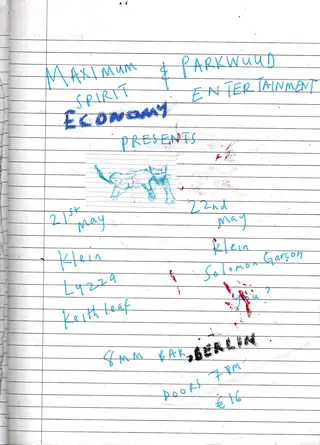 MAXIMUM & PARKWUUD
SPIRIT ENTERTAINMENT
ECONOMY
PRESENTS
21st May
Klein
Lyzza
Keithleaf
22nd may
Klein
Solomon Garson
You?
8MM BAR, BERLIN
DOORS 7PM
€16